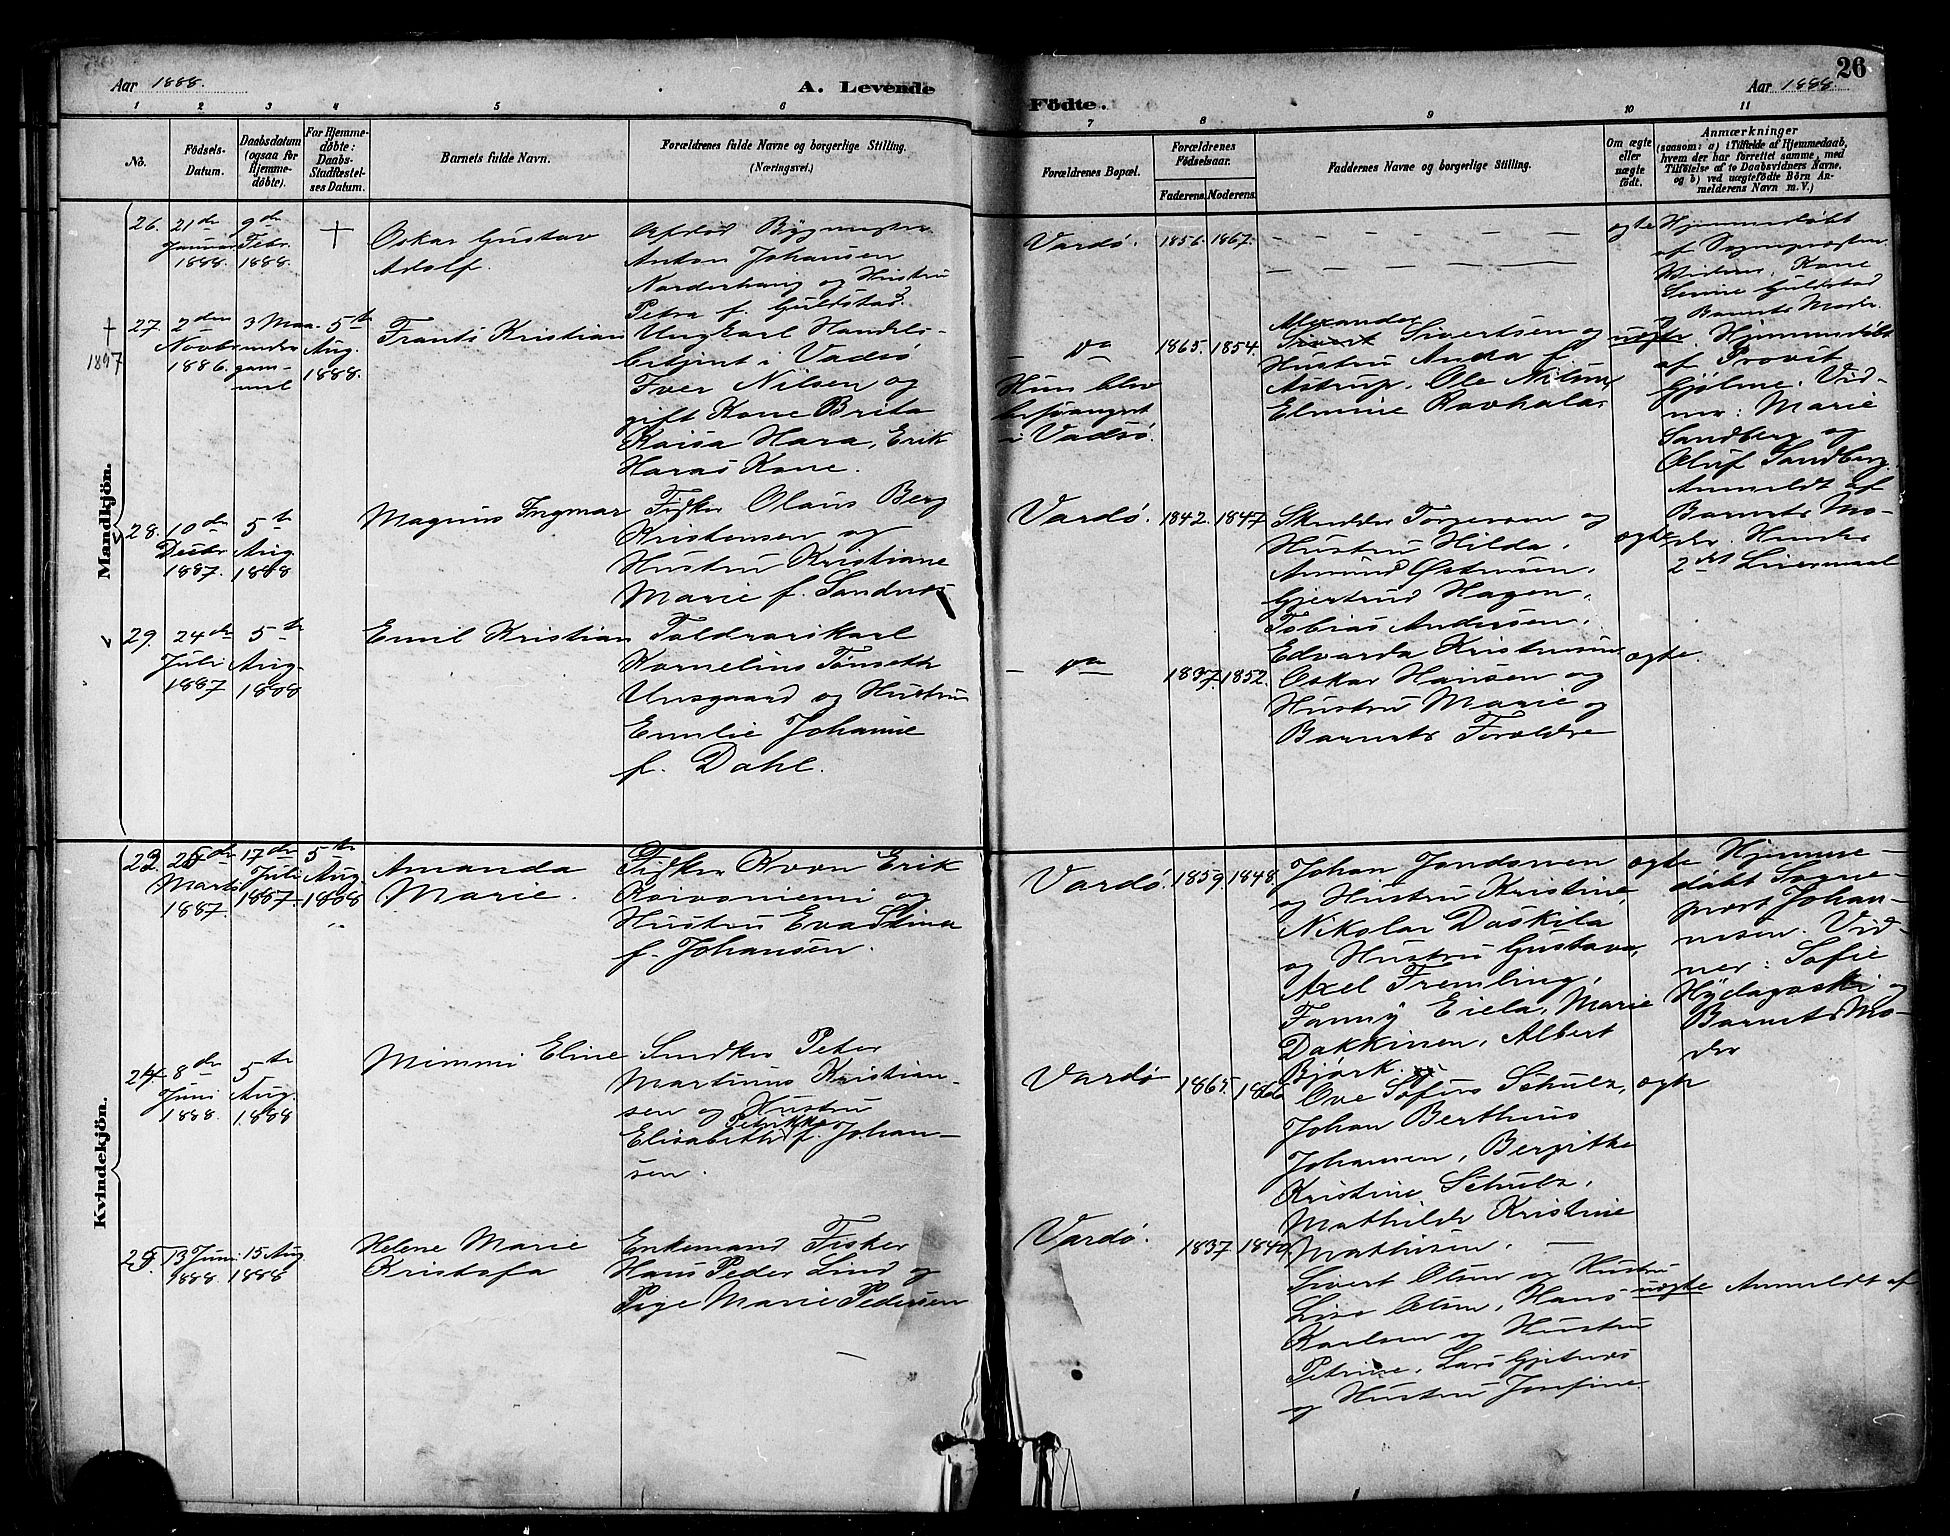 Aar 1888.
A. Levende
Födte.
Aar 1888.
26
1 2 3 4 5 6 7 8 9 10 11
No.
Födsels-
Datum.
Daabsdatum
(ogsaa for
Hjemme-
døbte).
For Hjemme-
døbte:
Daabs-
Stadfæstel-
ses Datum.
Barnets fulde Navn.
Forældrenes fulde Navne og borgerlige Stilling.
(Næringsvei.)
Forældrenes Bopæl.
Forældrenes
Födselsaar.
Faderens. Moderens.
Faddernes Navne og borgerlige Stilling.
Om ægte
eller
uægte
født.
Anmærkninger
(saasom: a) i Tilfælde af Hjemmedaab,
hvem der har forrettet samme, med
Tilføielse af to Daabsvidners Navne,
og b) ved uægtefödte Börn An-
melderens Navn m. V.)
Mandkjön.
26.
21de
Januar
1888.
9de
Febr.
1888.
+
Oskar Gustav
Adolf.
Anton Johansen
Norderhaug og Hustru
Petra f. Guldstad.
Vardø.
1856. 1867.
ægte
Hjemmedøbt
af Sognepræsten
Kone
Guldstad
og Barnets Moder.
+
1897
27.
2den
Novbr
1886.
3 Maa-
neder
gam-
mel
5te
Aug.
1888.
Frants Kristian
Ungkarl Handels-
betjent i Vadsø
Iver Nilsen og
gift Kone Brita
Kaisa Hara, Erik
Haras Kone.
— da —
Hun blev
besvangret
i Vadsø.
1865. 1854.
Alexander
Sivertsen og
Hustru Anna f.
Astrup. Ole Nilsen,
Elmine Ravhala.
uægte.
Hjemmedøbt
af Provst
Gjølme. Vid-
ner: Marie
Sandberg og
Oluf Sandberg.
Anmeldt af
Barnets Mo-
der. Hendes
2det Leiermaal
28.
10de
Decbr
1887.
5te
Aug
1888
Magnus Ingmar
Fisker Olaus Berg
Kristensen og
Hustru Kristiane
Marie f. Sandnes
Vardø.
1842. 1847
Torgersen og
Hustru Hilda,
Amund Østensen,
Gjertrud Hagen,
Tobias Andersen,
Edvarda Kristensen
ægte
29.
24de
Juli
1887
5te
Aug
1888
Emil Kristian
Toldrorskarl
Kornelius Tønseth
Unsgaard og Hustru
Emilie Johanne
f. Dahl.
— da —
1852.
Oskar Hansen og
Hustru Marie og
Barnets Forældre
ægte.
Kvindekjön.
23.
Marts
1887.
17de
Juli
1887.
5te
Aug.
1888
Amanda
Marie.
Fisker Kvæn Erik
Koivoniemi og
Hustru Eva Stina
f. Johansen.
Vardø.
1859. 1848.
Johan
og Hustru Kristine,
Nikolai Daskila
og Hustru Gustava,
Axel Fremling,
Fanny Eiela, Marie
Dakkinen, Albert
Björk.
ægte
Hjemme-
døbt Sogne-
præst Johan-
nesen. Vid-
ner: Sofie
og
Barnets Mo-
der
24
8de
Juni
1888.
5te
Aug.
1888
Mimmi Eline
Peter
Martinus Kristian-
sen og Hustru
Petrikke
Elisabeth f. Johan-
sen.
Vardø
1865. 1866
Ove Sofus Schulz,
Johan Berthius
Johansen, Bergitte
Kristine Schulz,
Mathilde Kristine
Mathisen. —
ægte
25.
13 Juni
1888
15 Aug
1888
Helene Marie
Kristofa
Enkemand Fisker
Hans Peder Lind og
Pige Marie Pedersen
Vardø.
1837 1840.
Sivert Olsen og Hustru
Lisa Olsen, Hans
Karlsen og Hustru
Petrine, Lars Gjetnes
og Hustru Josefine.
uægte
Anmeldt af